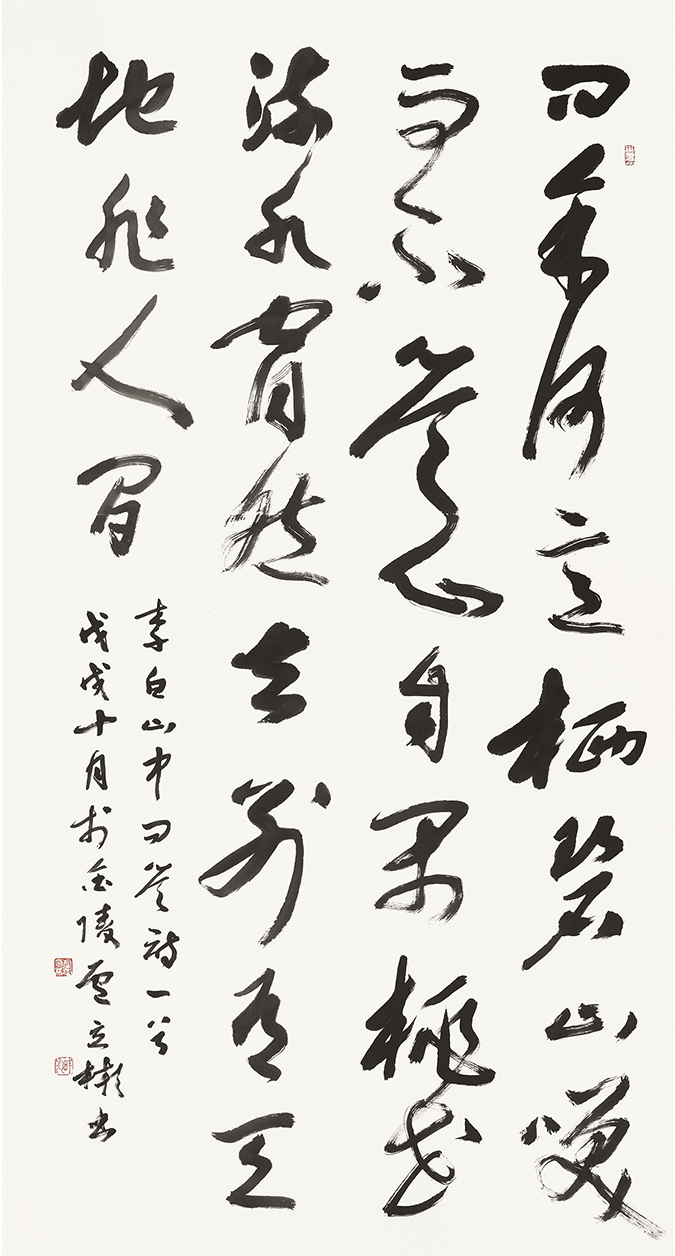 问余何意栖碧山笑
而不答心自闲桃花
流水窅然去别有天
地非人间
李白山中问答诗一首
戊戌十月于金陵立彬书